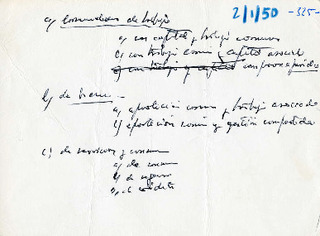 2/1/50 -325-
a) Comunidades de trabajo
a) con capital y trabajo comunes
b) con trabajo común y capital asociado
c) con trabajo y capital con
b) de bienes
a) aportación común y trabajo asociado
b) aportación común y gestión compartida
c) de servicios y consumo
a) de consumo
b) de seguros
c) de crédito